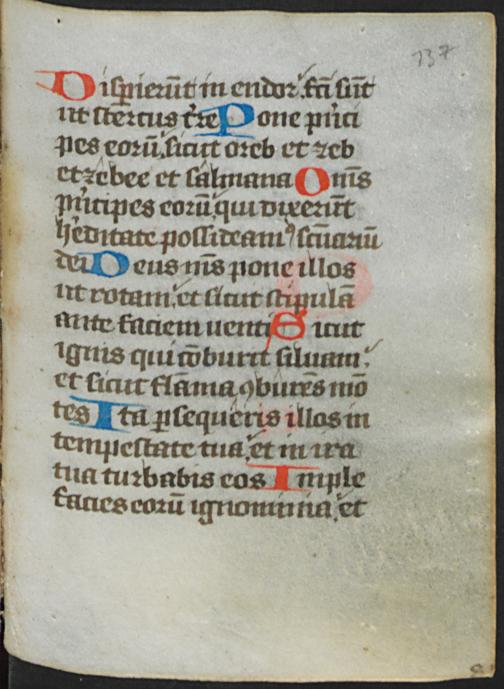 137
Disperierūt in endor. fc̄i sūt
ut stercus t̄re Pone p'nci
pes eorū. sicut oreb et zeb
et zebee et salmana Om̄s
p'ncipes eorū. qui dixerūt
h'editate possideam9 sc̄uariū
dei Deus m̄s pone illos
ut rotam. et sicut stipulā
ante faciem uenti Sicut
ignis qui cōburit siluam.
et sicut flāma 9burēs mō
tes Ita ꝑsequeris illos in
tempestate tua. et in ira
tua turbabis eos Imple
facies eorū ignominia. et